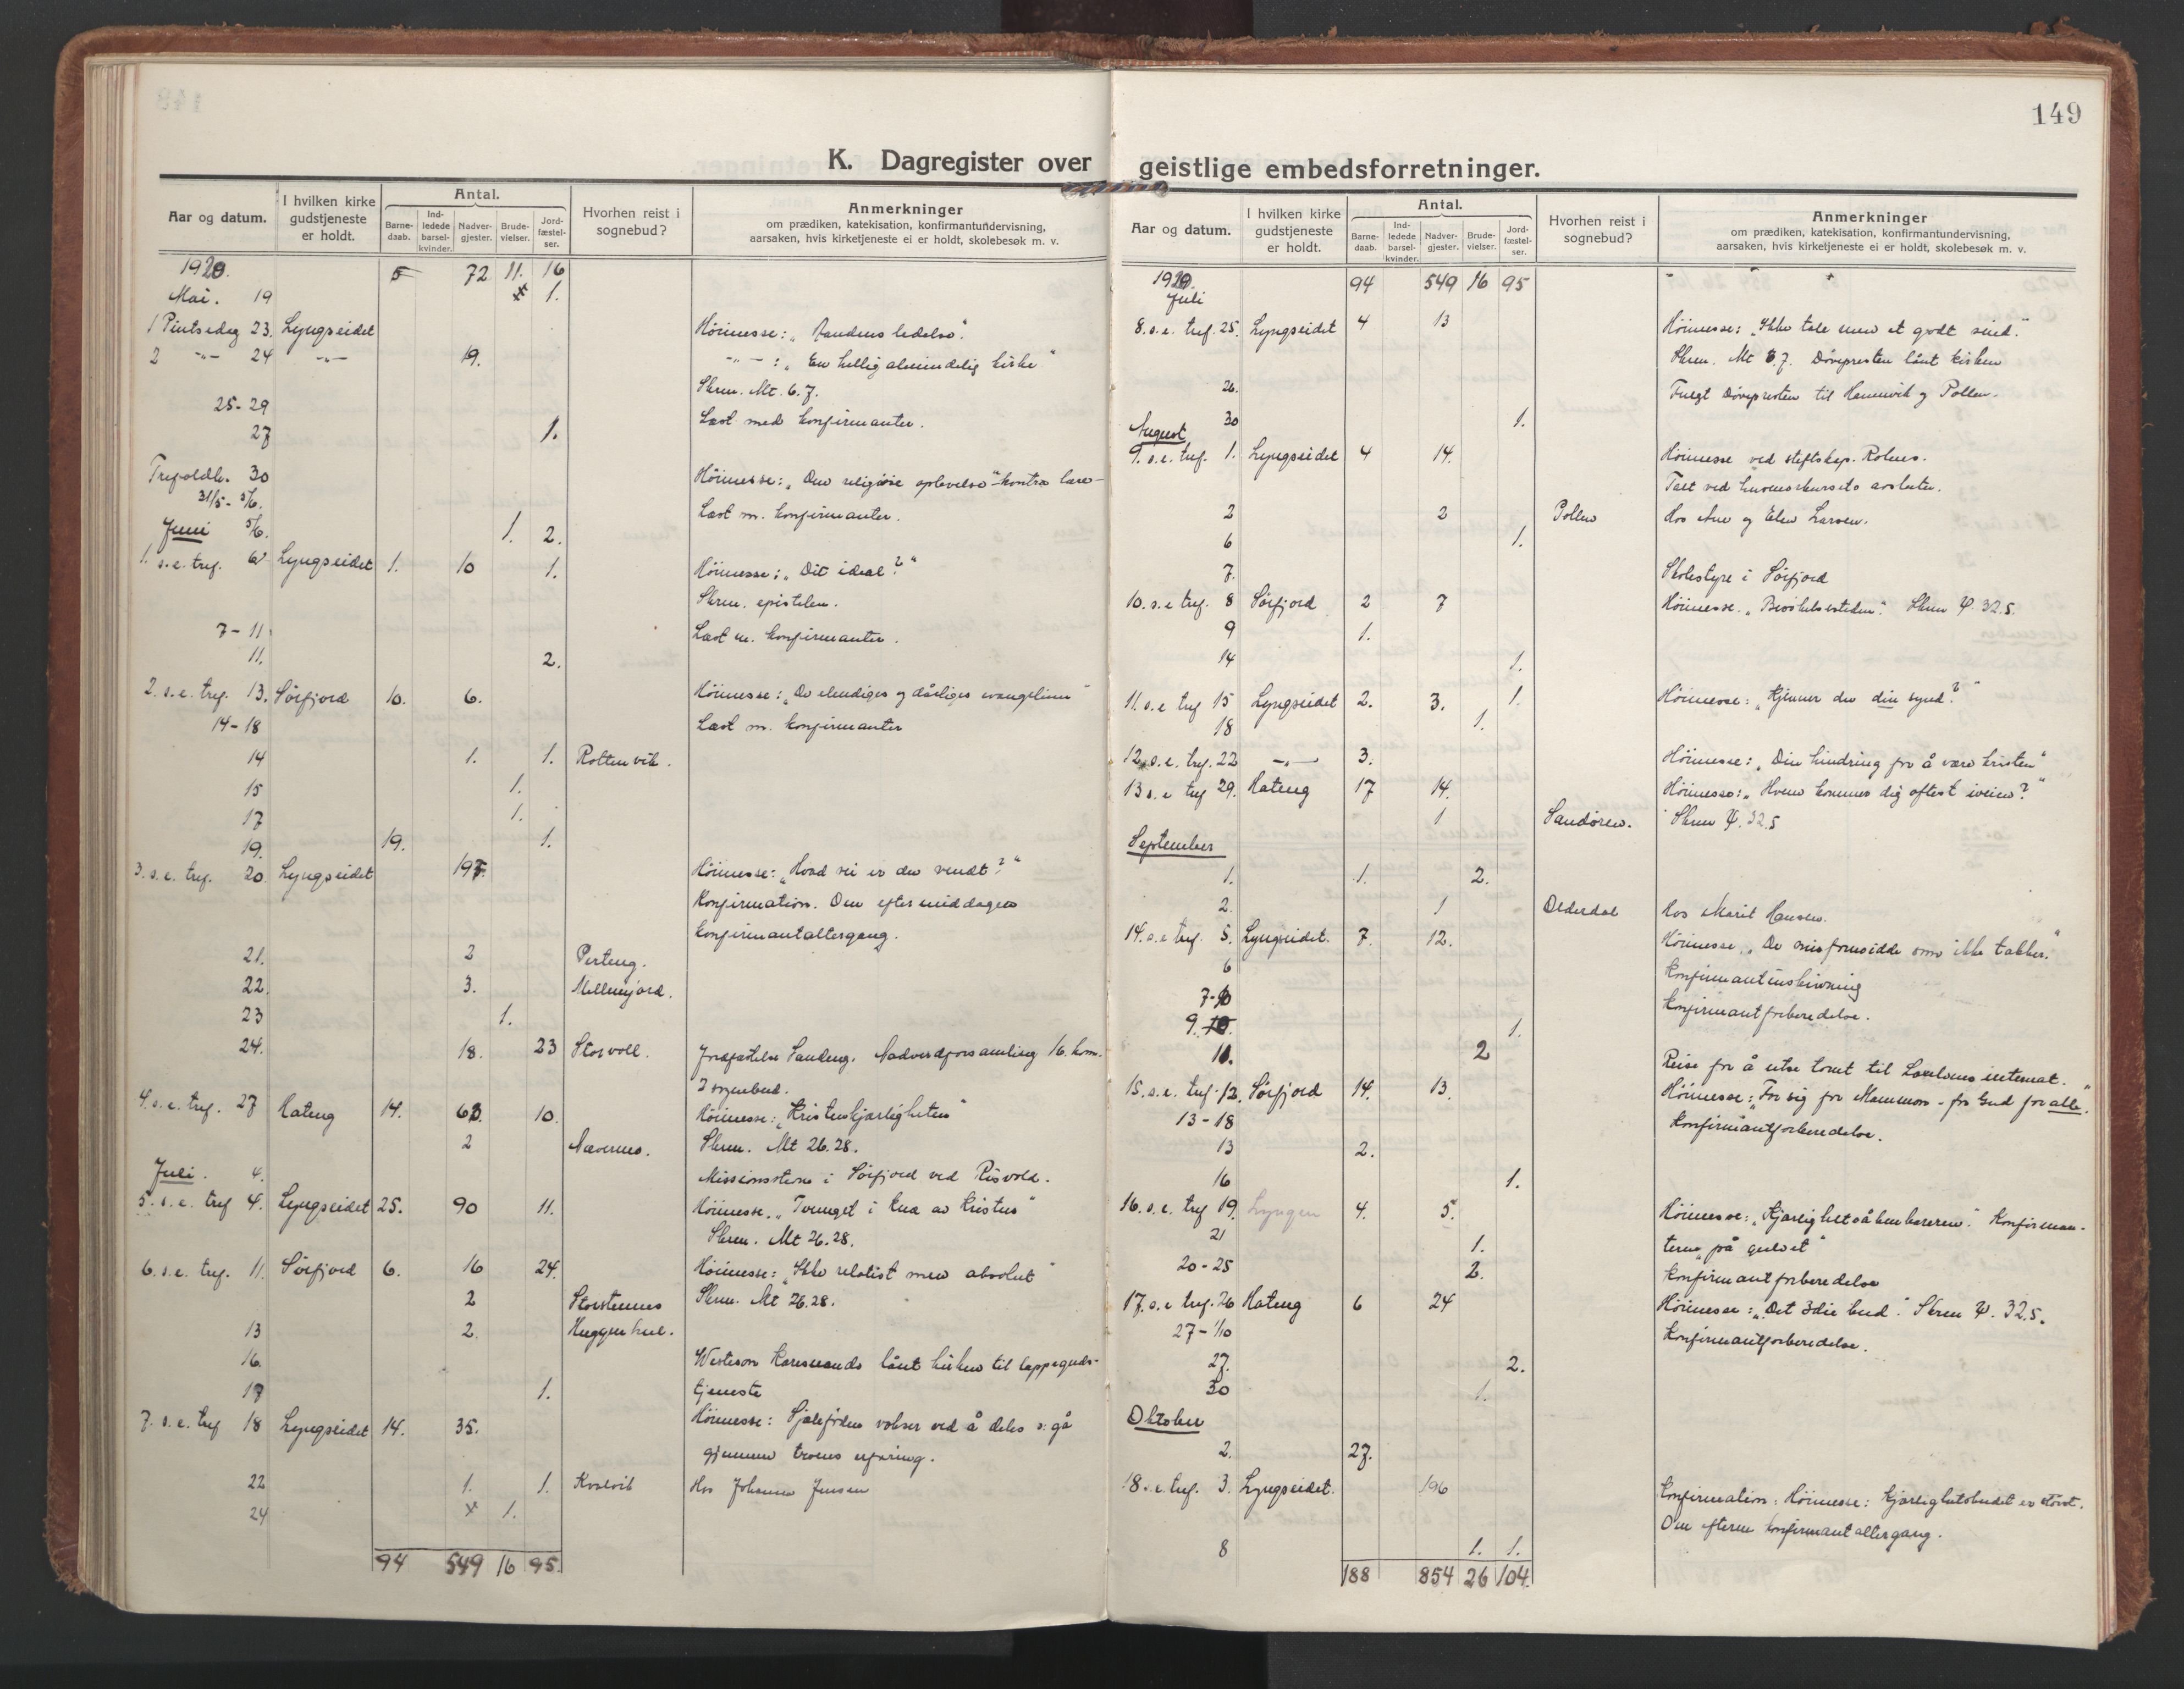 149
K. Dagregister over geistlige embedsforretninger.
Aar og datum.
I hvilken kirke gudstjeneste er holdt.
Antal.
Barne-daab.
Ind-ledede barsel-kvinder.
Nadver-gjester.
Brude-vielser.
Jord-fæstel-ser.
Hvorhen reist i sognebud?
Anmerkninger
om prædiken, katekisation, konfirmantundervisning,
aarsaken, hvis kirketjeneste ei er holdt, skolebesøk m. v.
1920. 5 72 11. 16
Mai. 19 1.
1 Pintsedag 23. Lyngseidet Höimesse: „Aandens ledelse".
2 -"- 24 -"- 19. -"- : „En hellig almindelig kirke"
Skrm. Mt. 6.7.
25-29 Læst med konfirmanter.
27 1.
Trefoldh. 30 Höimesse: „Den religiöse oplevelse" kontra lære
31/5 - 5/6. Læst m. konfirmanter.
Juni 5/6. 1. 2.
1. s.e. tref. 6 Lyngseidet 1. 10 1. Höimesse: „Dit ideal?"
Skrm. epistelen.
7-11. Læst m. konfirmanter.
11. 2.
2. s.e. tref. 13. Sörfjord 10. 6. Höimesse: „De elendiges og dårliges evangelium"
14-18 Læst m. konfirmanter
14 1. 1. Rottenvik.
15 1.
17 1.
19. 19. 1.
3. s.e. tref. 20. Lyngseidet 195. Höimesse: „Hvad vei er du vendt?"
Konfirmation. Om eftermiddagen
konfirmantaltergang.
21. 2 Perteng.
22. 3. Mellemjord.
23 1.
24. 18. 23 Storvoll. Jordfæstelse Sandeng. Nadverdforsamling 16. kom.
2 sognebud.
4. s.e. tref. 27 Hateng 14. 63. 10. Höimesse: „Kristenkjærligheten"
2 Nævernes. Skrm. Mt 26.28.
Juli. 4. Missionsstevne i Sörfjord ved Risvold.
5. s.e. tref 4. Lyngseidet 25. 90 11. Höimesse. „Tvunget i knæ av Kristus"
Skrm. Mt 26.28.
6. s.e. tref. 11. Sörfjord 6. 16 24. Höimesse: „Ikke relativt men absolut"
2 Storstennes Skrm. Mt 26.28.
13 2. Huggenhul.
16. Westeson Karesuando lånt kirken til lappeguds-
17 1. tjeneste
7. s.e. tref 18 Lyngseidet 14. 35. Höimesse: Sjælefröden vokser ved å deles o: gå
gjennem troens erfaring.
22 1. 1. Kvalvik Hos Johanna Jensen
24 1.
94 549 16 95.
Aar og datum.
I hvilken kirke gudstjeneste er holdt.
Antal.
Barne-daab.
Ind-ledede barsel-kvinder.
Nadver-gjester.
Brude-vielser.
Jord-fæstel-ser.
Hvorhen reist i sognebud?
Anmerkninger
om prædiken, katekisation, konfirmantundervisning,
aarsaken, hvis kirketjeneste ei er holdt, skolebesøk m. v.
1920. 94 549 16 95
Juli
8. s.e. tref. 25. Lyngseidet 4 13 Höimesse: „Ikke tale men et godt sind."
Skrm. Mt 6.7. Dövepresten lånt kirken
26. Fulgt Dövepresten til Hamnvik og Pollen.
30 1.
August
9. s.e. tref. 1. Lyngseidet 4 14. Höimesse ved stiftskap. Rolnes.
Talt ved husmorkursets avslutn.
2 2 Pollen Hos Ane og Elen Larsen.
6 1.
7. Skolestyre i Sörfjord
10. s.e tref. 8 Sörfjord 2 7 Höimesse. „Besökelsestiden". Skrm Ψ. 32.5.
9 1.
14 1.
11. s.e tref 15 Lyngseidet 2. 3. 1. Höimesse: „Kjenner du din synd?"
18 1.
12. s.e. tref. 22 -"- 3. Höimesse: „Din hindring for å være kristen"
13 s.e tref 29. Hateng 17 14. Höimesse: „Hvem kommer dig oftest iveien?"
1 Sandören. Skrm Ψ. 32.5
September
1. 1. 2.
2. 1 Olderdal Hos Marit Hansen.
14. s.e tref. 5. Lyngseidet. 7. 12. Höimesse. „De misfornöidde som ikke takker."
6 Konfirmantinskrivning
7-10 Konfirmantforberedelse.
9. 10. 1.
11. 2 Reise for å utse tomt til internat.
15. s.e. tref. 12. Sörfjord 14. 13. Höimesse: „For sig for Mammon - for Gud for alle".
13-18 Konfirmantforberedelse.
13 2.
16 1.
16. s.e. tref 19. Lyngen 4. 5. Höimesse: „Kjærlighetsåbenbareren". Konfirman-
21 1. terne „på gulvet"
20-25 2. Konfirmantforberedelse
17. s.e tref. 26 Hateng 6 24 Höimesse: „Det 3die bud". Skrm Ψ. 32.5.
27-1/10 Konfirmantforberedelse.
27. 2.
30 1.
Oktober
2. 27.
18. s.e. tref. 3. Lyngseidet. 196 Konfirmation: Höimesse: Kjærlighetsbudet er störst.
Om efterm konfirmantaltergang.
8 1. 1.
188 854 26 104.